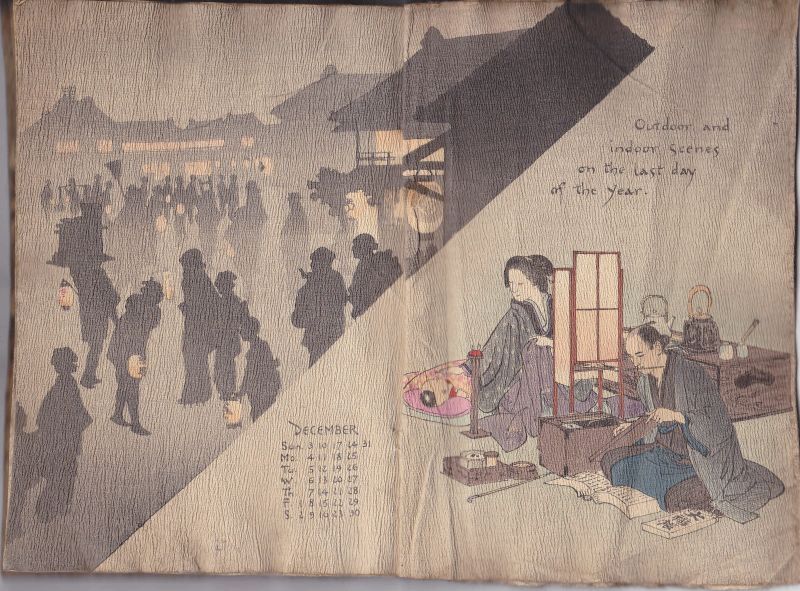 Outdoor and
indoor scenes
on the last day
of the year.
DECEMBER
Sun. 3 10 17 24 31
Mo. 4 11 18 25
Tu. 5 12 19 26
W. 6 13 20 27
Th. 7 14 21 28
F. 1 8 15 22 29
S. 2 9 16 23 30